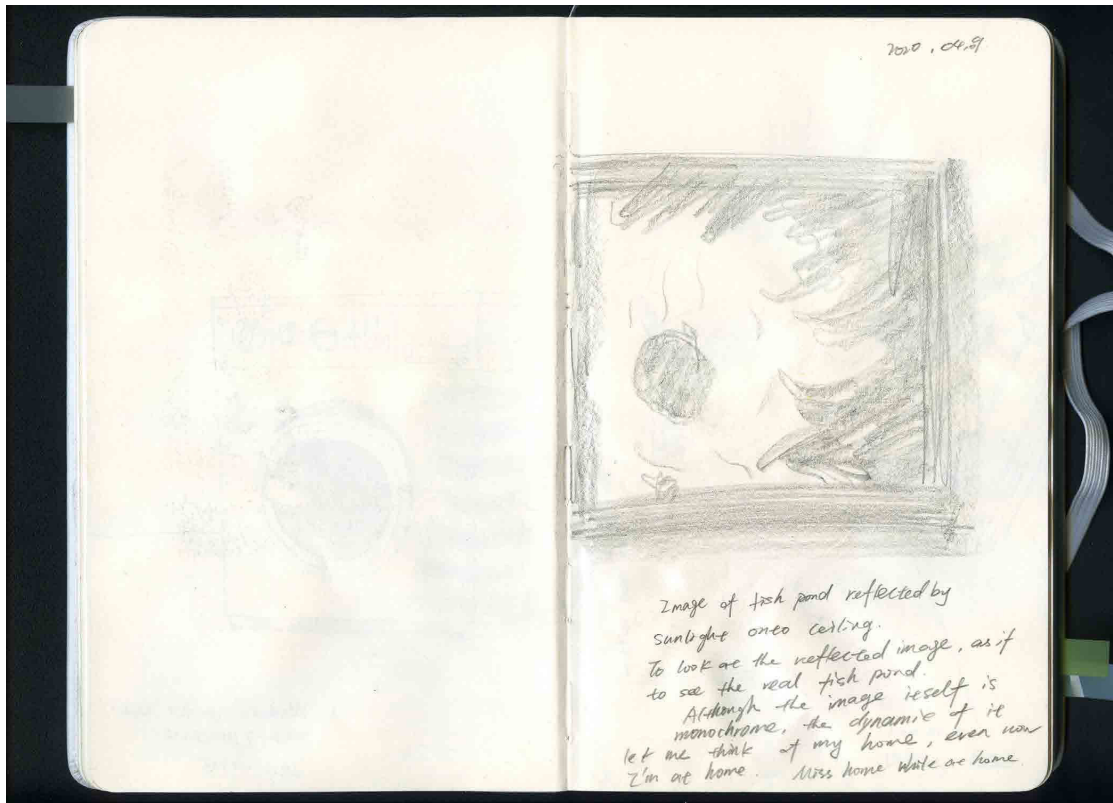 2020.04.9
Image of fish pond reflected by
sunlight onto ceiling.
To look at the reflected image, as if
to see the real fish pond.
Although the image itself is
monochrome, the dynamic of it
let me think of my home, even now
I'm at home. Miss home while at home.